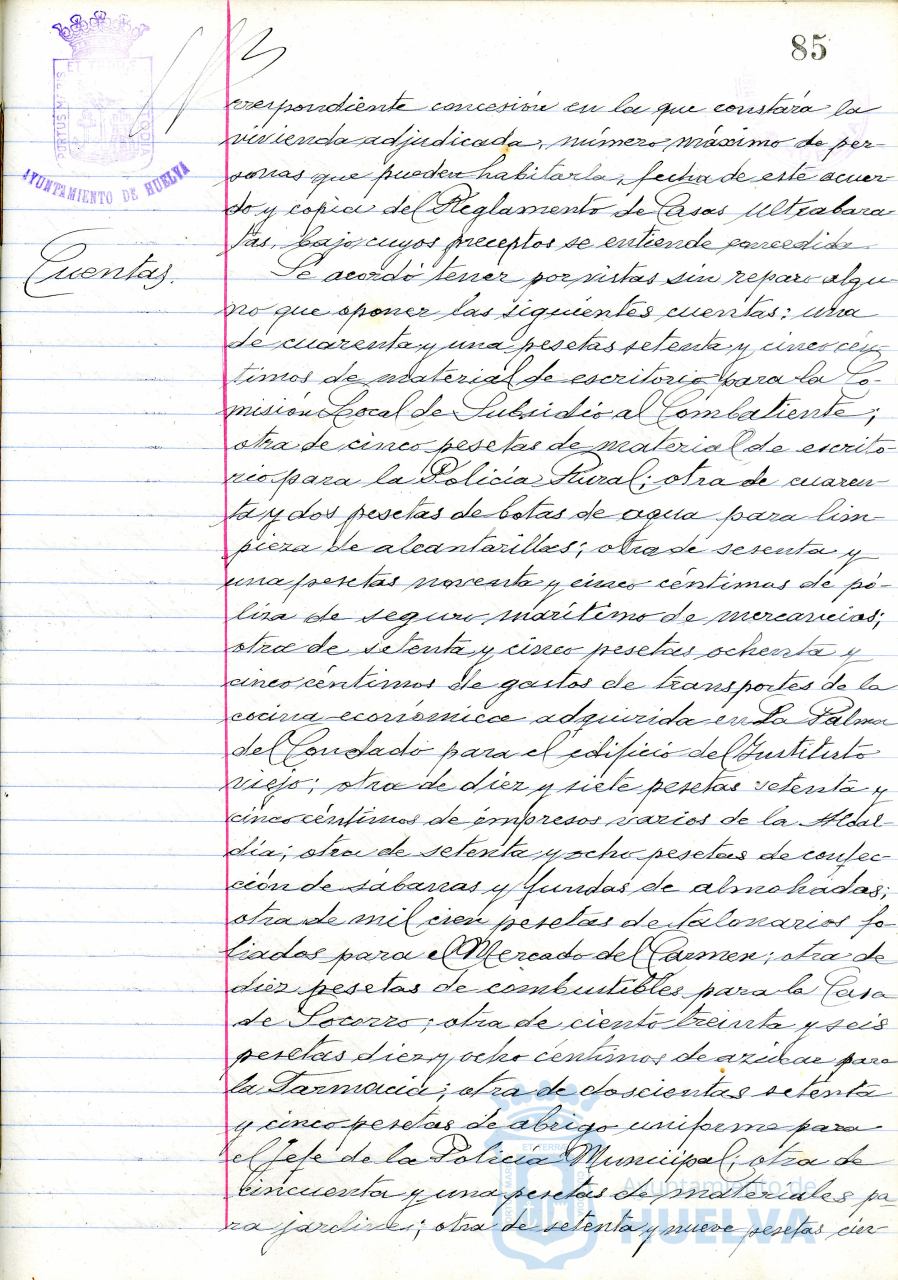 85
PORTUS MARIS ET TERRÆ CUSTODIA
AYUNTAMIENTO DE HUELVA
rrespondiente concesión en la que constará la
vivienda adjudicada, número máximo de per-
sonas que pueden habitarla, fecha de este acuer-
do y copia del Reglamento de Casas Ultrabara-
tas, bajo cuyos preceptos se entiende concedida.
Cuentas.
Se acordó tener por vistas sin reparo algu-
no que oponer las siguientes cuentas: una
de cuarenta y una pesetas setenta y cinco cén-
timos de material de escritorio para la Co-
misión Local de Subsidio al Combatiente;
otra de cinco pesetas de material de escrito-
rio para la Policía Rural; otra de cuaren-
ta y dos pesetas de botas de agua para lim-
pieza de alcantarillas; otra de sesenta y
una pesetas noventa y cinco céntimos de pó-
liza de seguro marítimo de mercancías;
otra de setenta y cinco pesetas ochenta y
cinco céntimos de gastos de transportes de la
cocina económica adquirida en La Palma
del Condado para el edificio del Instituto
viejo; otra de diez y siete pesetas setenta y
cinco céntimos de impresos varios de la Alcal-
día; otra de setenta y ocho pesetas de confec-
ción de sábanas y fundas de almohadas;
otra de mil cien pesetas de talonarios fo-
liados para el Mercado del Carmen; otra de
diez pesetas de combustibles para la Casa
de Socorro; otra de ciento treinta y seis
pesetas diez y ocho céntimos de azúcar para
la Farmacia; otra de doscientas setenta
y cinco pesetas de abrigo uniforme para
el Jefe de la Policía Municipal; otra de
cincuenta y una pesetas de materiales pa-
ra jardines; otra de setenta y nueve pesetas cin-
Ayuntamiento de
HUELVA